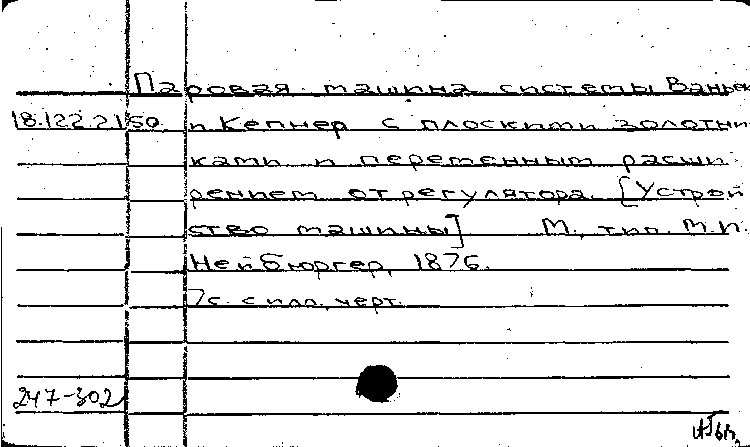 Паровая машина системы Ваньек
18.122.2150 и Кепнер с плоскими золотни-
ками и переменным расши-
рением от регулятора. [Устрой
ство машины] М., тип. М.И.
Нейбюргер, 1876.
7с. с илл., черт.
247-302